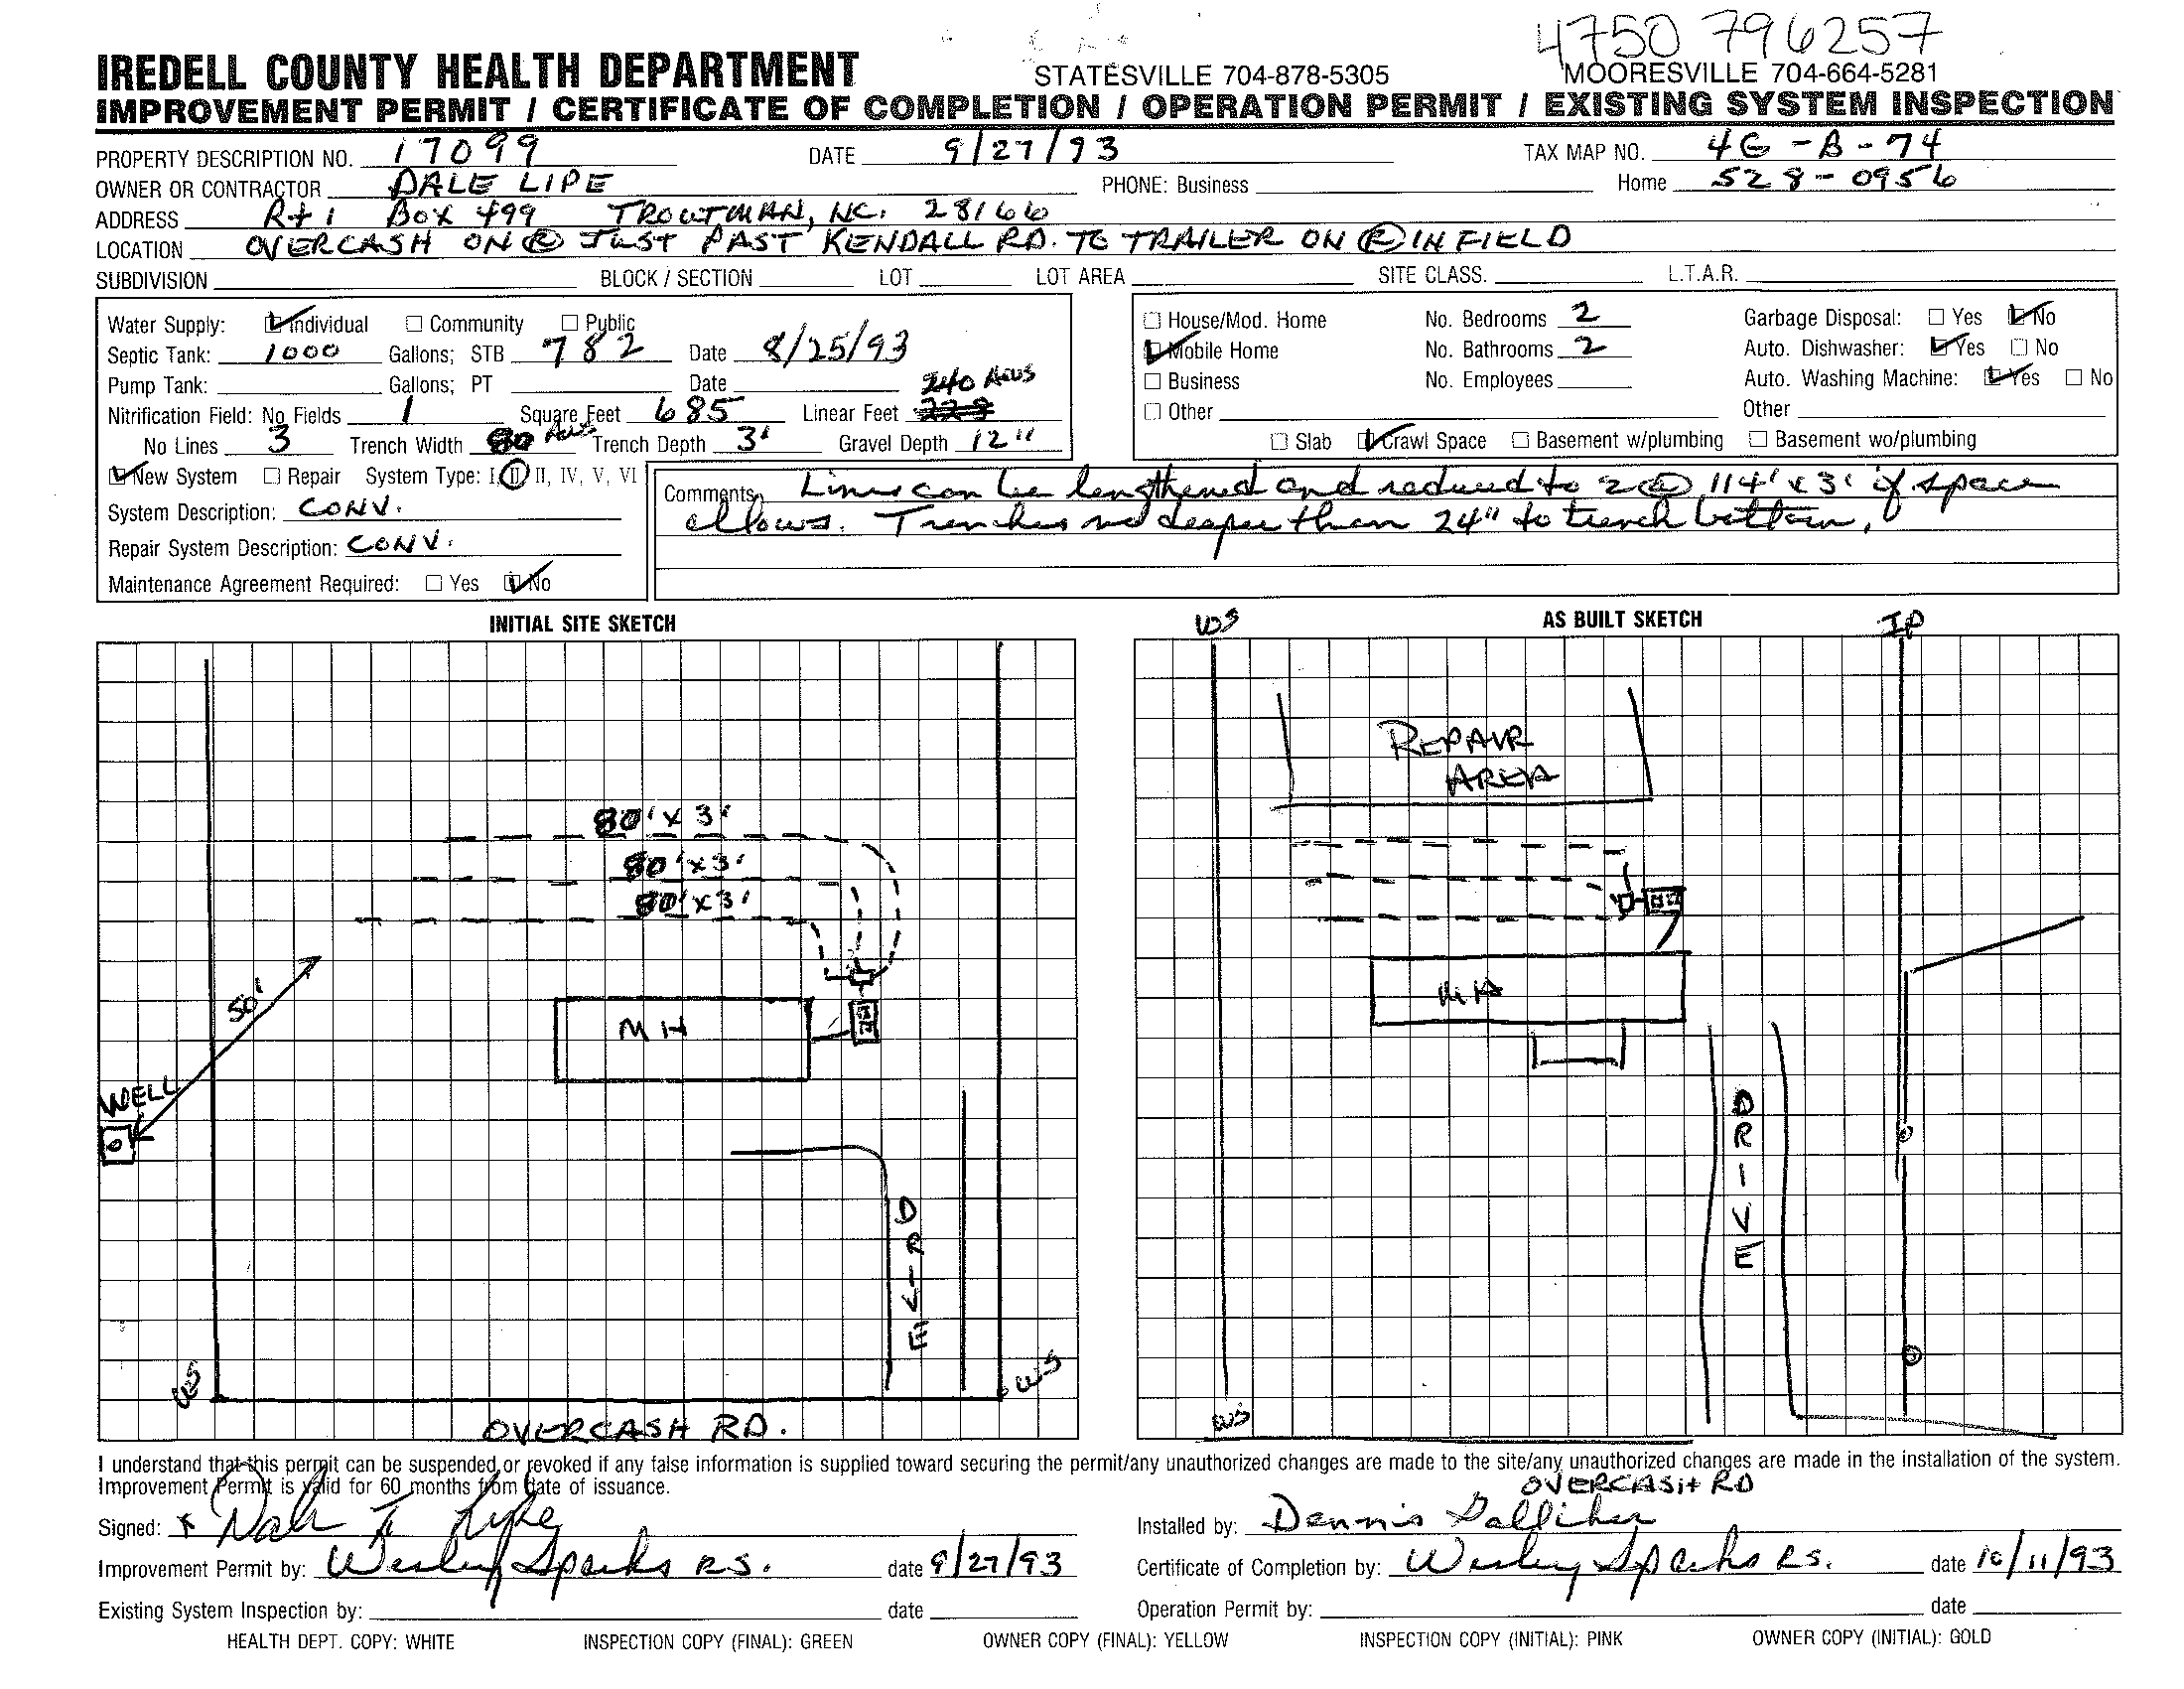 4750 796257
IREDELL COUNTY HEALTH DEPARTMENT STATESVILLE 704-878-5305 MOORESVILLE 704-664-5281
IMPROVEMENT PERMIT / CERTIFICATE OF COMPLETION / OPERATION PERMIT / EXISTING SYSTEM INSPECTION
PROPERTY DESCRIPTION NO. 17099 DATE 9/27/93 TAX MAP NO. 4G-B-74
OWNER OR CONTRACTOR DALE LIPE PHONE: Business Home 528-0956
ADDRESS Rt 1 Box 499 TROUTMAN, NC. 28166
LOCATION OVERCASH ON Ⓡ JUST PAST KENDALL RD. TO TRAILER ON Ⓡ IN FIELD
SUBDIVISION BLOCK / SECTION LOT LOT AREA SITE CLASS. L.T.A.R.
Water Supply: ☑ Individual ☐ Community ☐ Public
Septic Tank: 1000 Gallons; STB 782 Date 8/25/93
Pump Tank: Gallons; PT Date
240
Nitrification Field: No Fields 1 Square Feet 685 Linear Feet
No Lines 3 Trench Width Trench Depth 3' Gravel Depth 12"
☑ New System ☐ Repair System Type: I, II, II, IV, V, VI
System Description: CONV.
Repair System Description: CONV.
Maintenance Agreement Required: ☐ Yes ☑ No
☐ House/Mod. Home No. Bedrooms 2 Garbage Disposal: ☐ Yes ☑ No
☑ Mobile Home No. Bathrooms 2 Auto. Dishwasher: ☑ Yes ☐ No
☐ Business No. Employees Auto. Washing Machine: ☑ Yes ☐ No
☐ Other Other
☐ Slab ☑ Crawl Space ☐ Basement w/plumbing ☐ Basement wo/plumbing
Comments Lines can be lengthened and reduced to 2 @ 114' x 3' if space
allows. Trenches no deeper than 24" to trench bottom.
INITIAL SITE SKETCH
80' x 3'
80' x 3'
80' x 3'
50'
MH
WELL
DRIVE
WS
WS
OVERCASH RD.
AS BUILT SKETCH
WS
IP
REPAIR
AREA
MH
DRIVE
WS
OVERCASH RD
I understand that this permit can be suspended or revoked if any false information is supplied toward securing the permit/any unauthorized changes are made to the site/any unauthorized changes are made in the installation of the system.
Improvement Permit is valid for 60 months from date of issuance.
Signed: x Dale Lipe
Installed by: Dennis Galliher
Improvement Permit by: Wesley Sparks R.S. date 9/27/93
Certificate of Completion by: Wesley Sparks R.S. date 10/11/93
Existing System Inspection by: date
Operation Permit by: date
HEALTH DEPT. COPY: WHITE INSPECTION COPY (FINAL): GREEN OWNER COPY (FINAL): YELLOW INSPECTION COPY (INITIAL): PINK OWNER COPY (INITIAL): GOLD